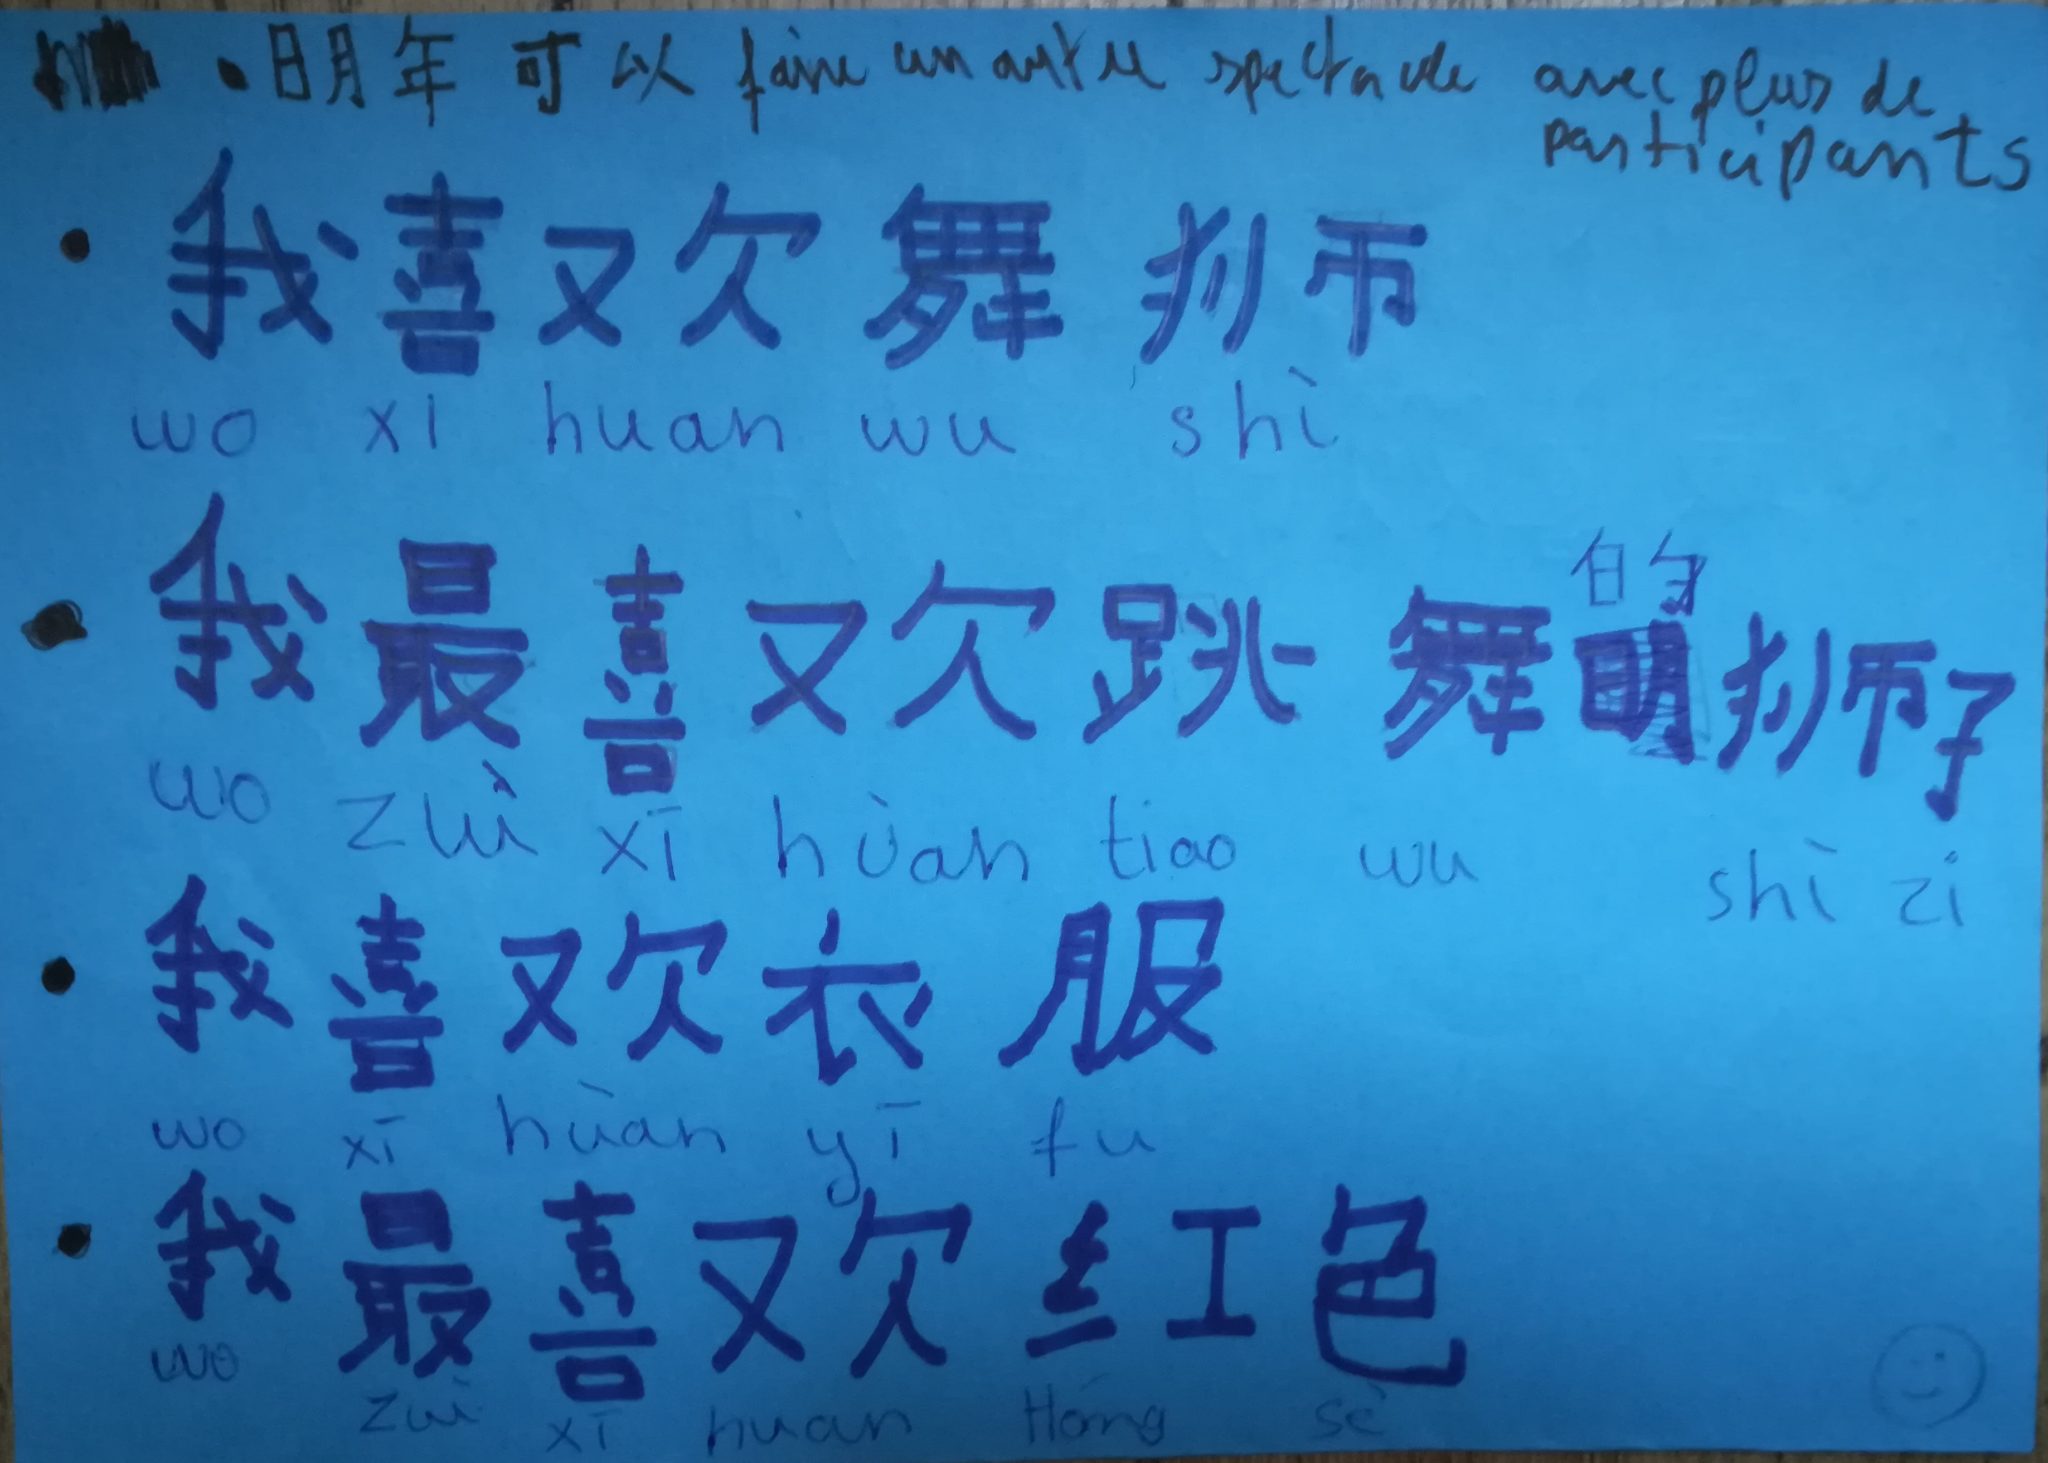 • 明年可以 faire un autre spectacle avec plus de
participants
• 我喜欢舞狮
wo xi huan wu shì
的
• 我最喜欢跳舞狮子
wo zuì xī hùan tiao wu shì zi
• 我喜欢衣服
wo xī hùan yī fu
• 我最喜欢红色
wo zuì xī huan Hóng sè